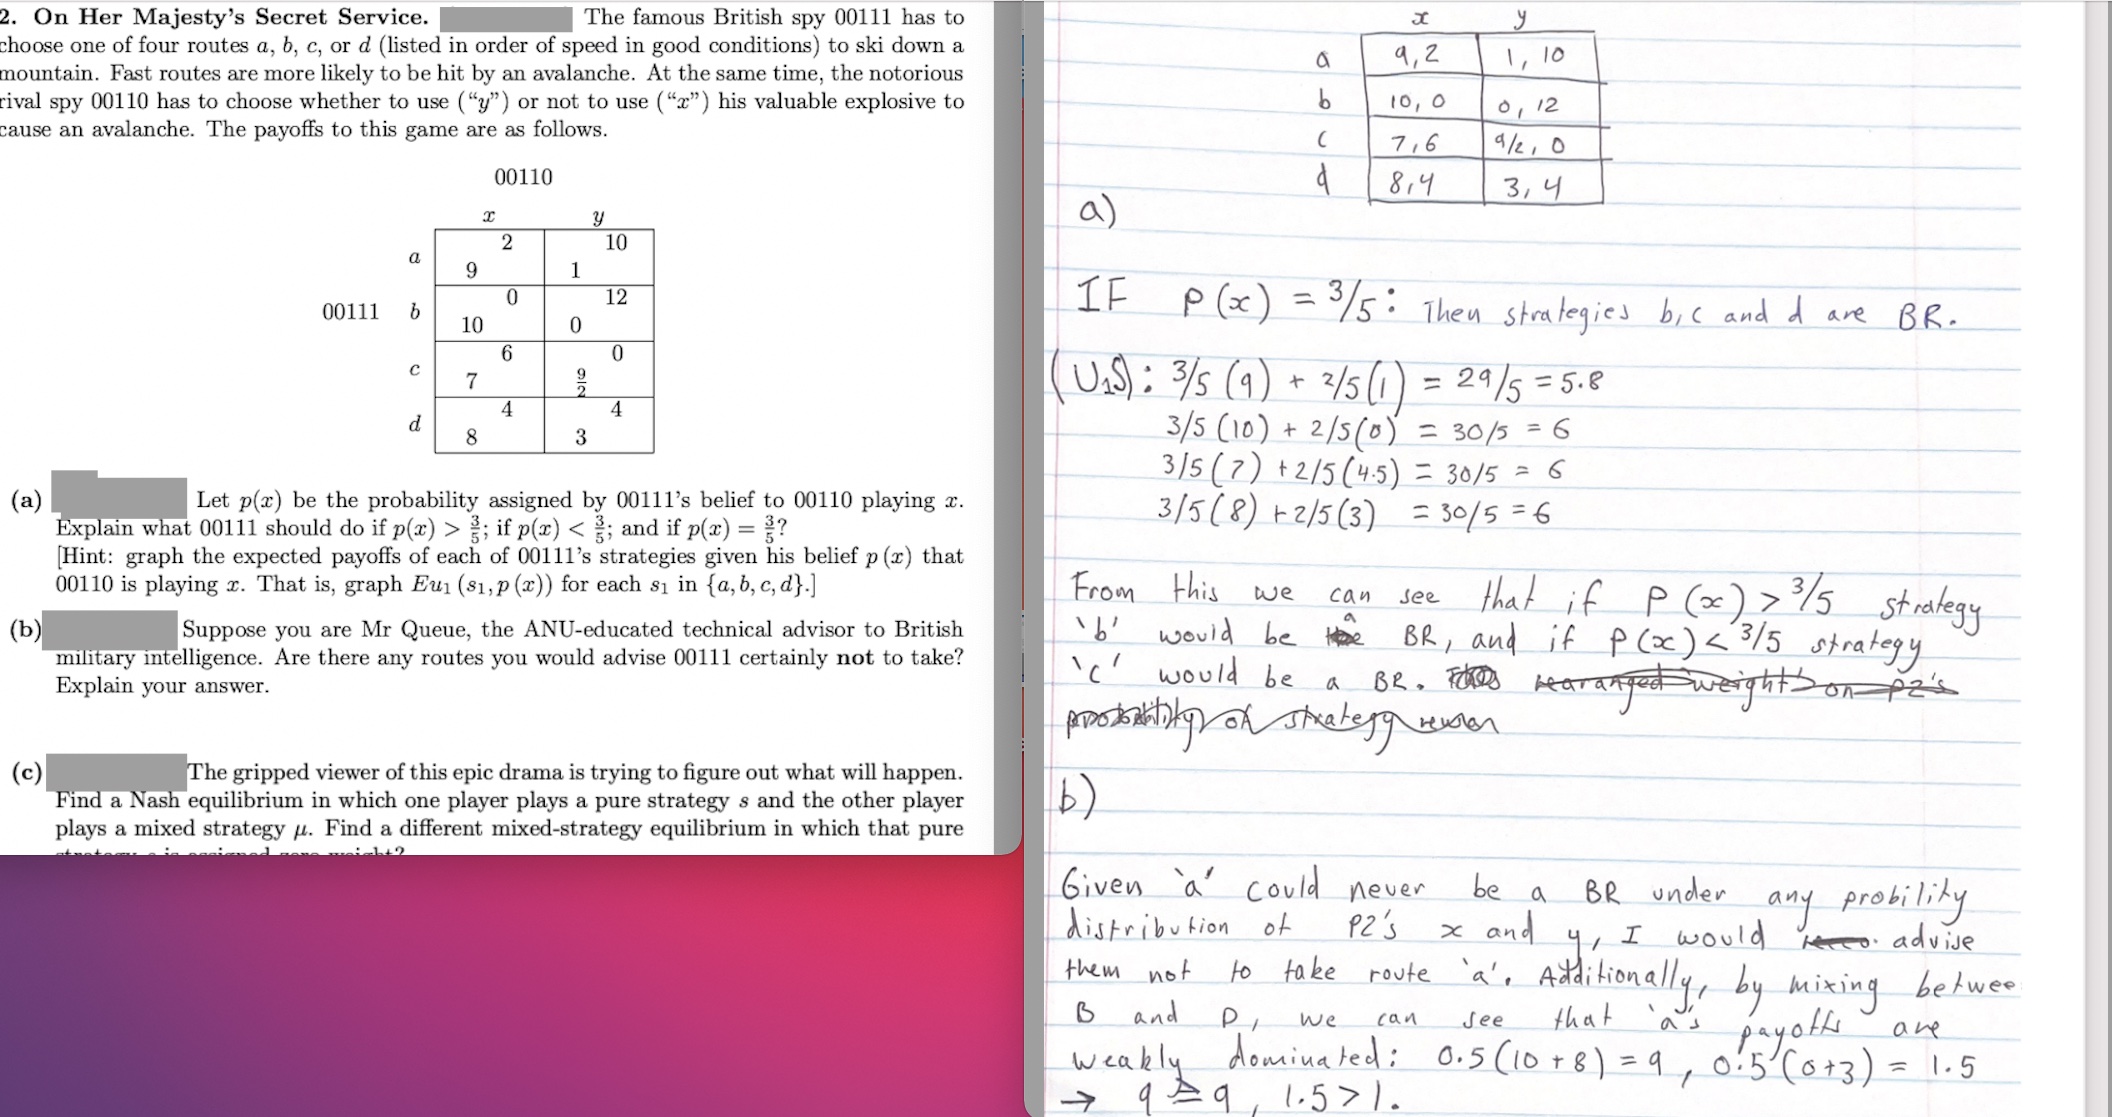 2. On Her Majesty's Secret Service. The famous British spy 00111 has to
choose one of four routes a, b, c, or d (listed in order of speed in good conditions) to ski down a
mountain. Fast routes are more likely to be hit by an avalanche. At the same time, the notorious
rival spy 00110 has to choose whether to use (“y”) or not to use (“x”) his valuable explosive to
cause an avalanche. The payoffs to this game are as follows.
00110
x y
2 10
a
9 1
0 12
00111 b
10 0
6 0
c
7 9/2
4 4
d
8 3
(a) Let p(x) be the probability assigned by 00111's belief to 00110 playing x.
Explain what 00111 should do if p(x) > 3/5; if p(x) < 3/5; and if p(x) = 3/5?
[Hint: graph the expected payoffs of each of 00111's strategies given his belief p (x) that
00110 is playing x. That is, graph Eu₁ (s₁, p (x)) for each s₁ in {a, b, c, d}.]
(b) Suppose you are Mr Queue, the ANU-educated technical advisor to British
military intelligence. Are there any routes you would advise 00111 certainly not to take?
Explain your answer.
(c) The gripped viewer of this epic drama is trying to figure out what will happen.
Find a Nash equilibrium in which one player plays a pure strategy s and the other player
plays a mixed strategy μ. Find a different mixed-strategy equilibrium in which that pure
strategy s is assigned zero weight?
x y
a 9,2 1, 10
b 10, 0 0, 12
c 7,6 9/2, 0
d 8,4 3, 4
a)
IF P(x) = 3/5: Then strategies b, c and d are BR.
(U₁S): 3/5 (9) + 2/5(1) = 29/5 = 5.8
3/5 (10) + 2/5(0) = 30/5 = 6
3/5(7) + 2/5(4.5) = 30/5 = 6
3/5(8) + 2/5(3) = 30/5 = 6
From this we can see that if P(x) > 3/5 strategy
'b' would be a BR, and if P(x) < 3/5 strategy
'c' would be a BR. rearanged weights on P2's
probability of strategy
b)
Given 'a' could never be a BR under any probility
distribution of P2's x and y, I would advise
them not to take route 'a'. Additionally, by mixing betwee
B and D, we can see that 'a's payoffs are
weakly dominated: 0.5(10 + 8) = 9, 0.5(0+3) = 1.5
→ 9 ≥ 9, 1.5 > 1.